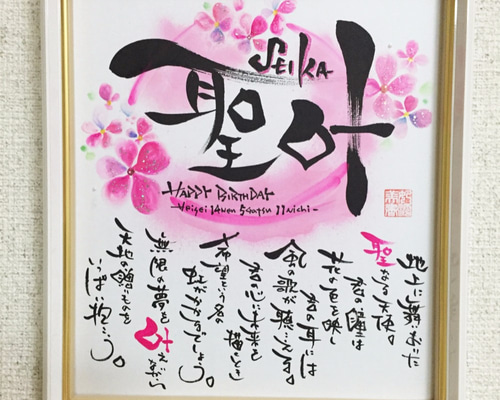 SEIKA
聖叶
HAPPY BIRTHDAY
-Heisei 14nen 5gatsu 11nichi-
地上に舞いおりた
聖なる天使。
君の瞳は
花の色を映し
君の耳には
風の歌が聴こえる。
君の心が未来を
描くとき
希望という名の
虹がかかるでしょう。
無限の夢を叶えながら
天地の贈りものを
いっぱい抱こう。